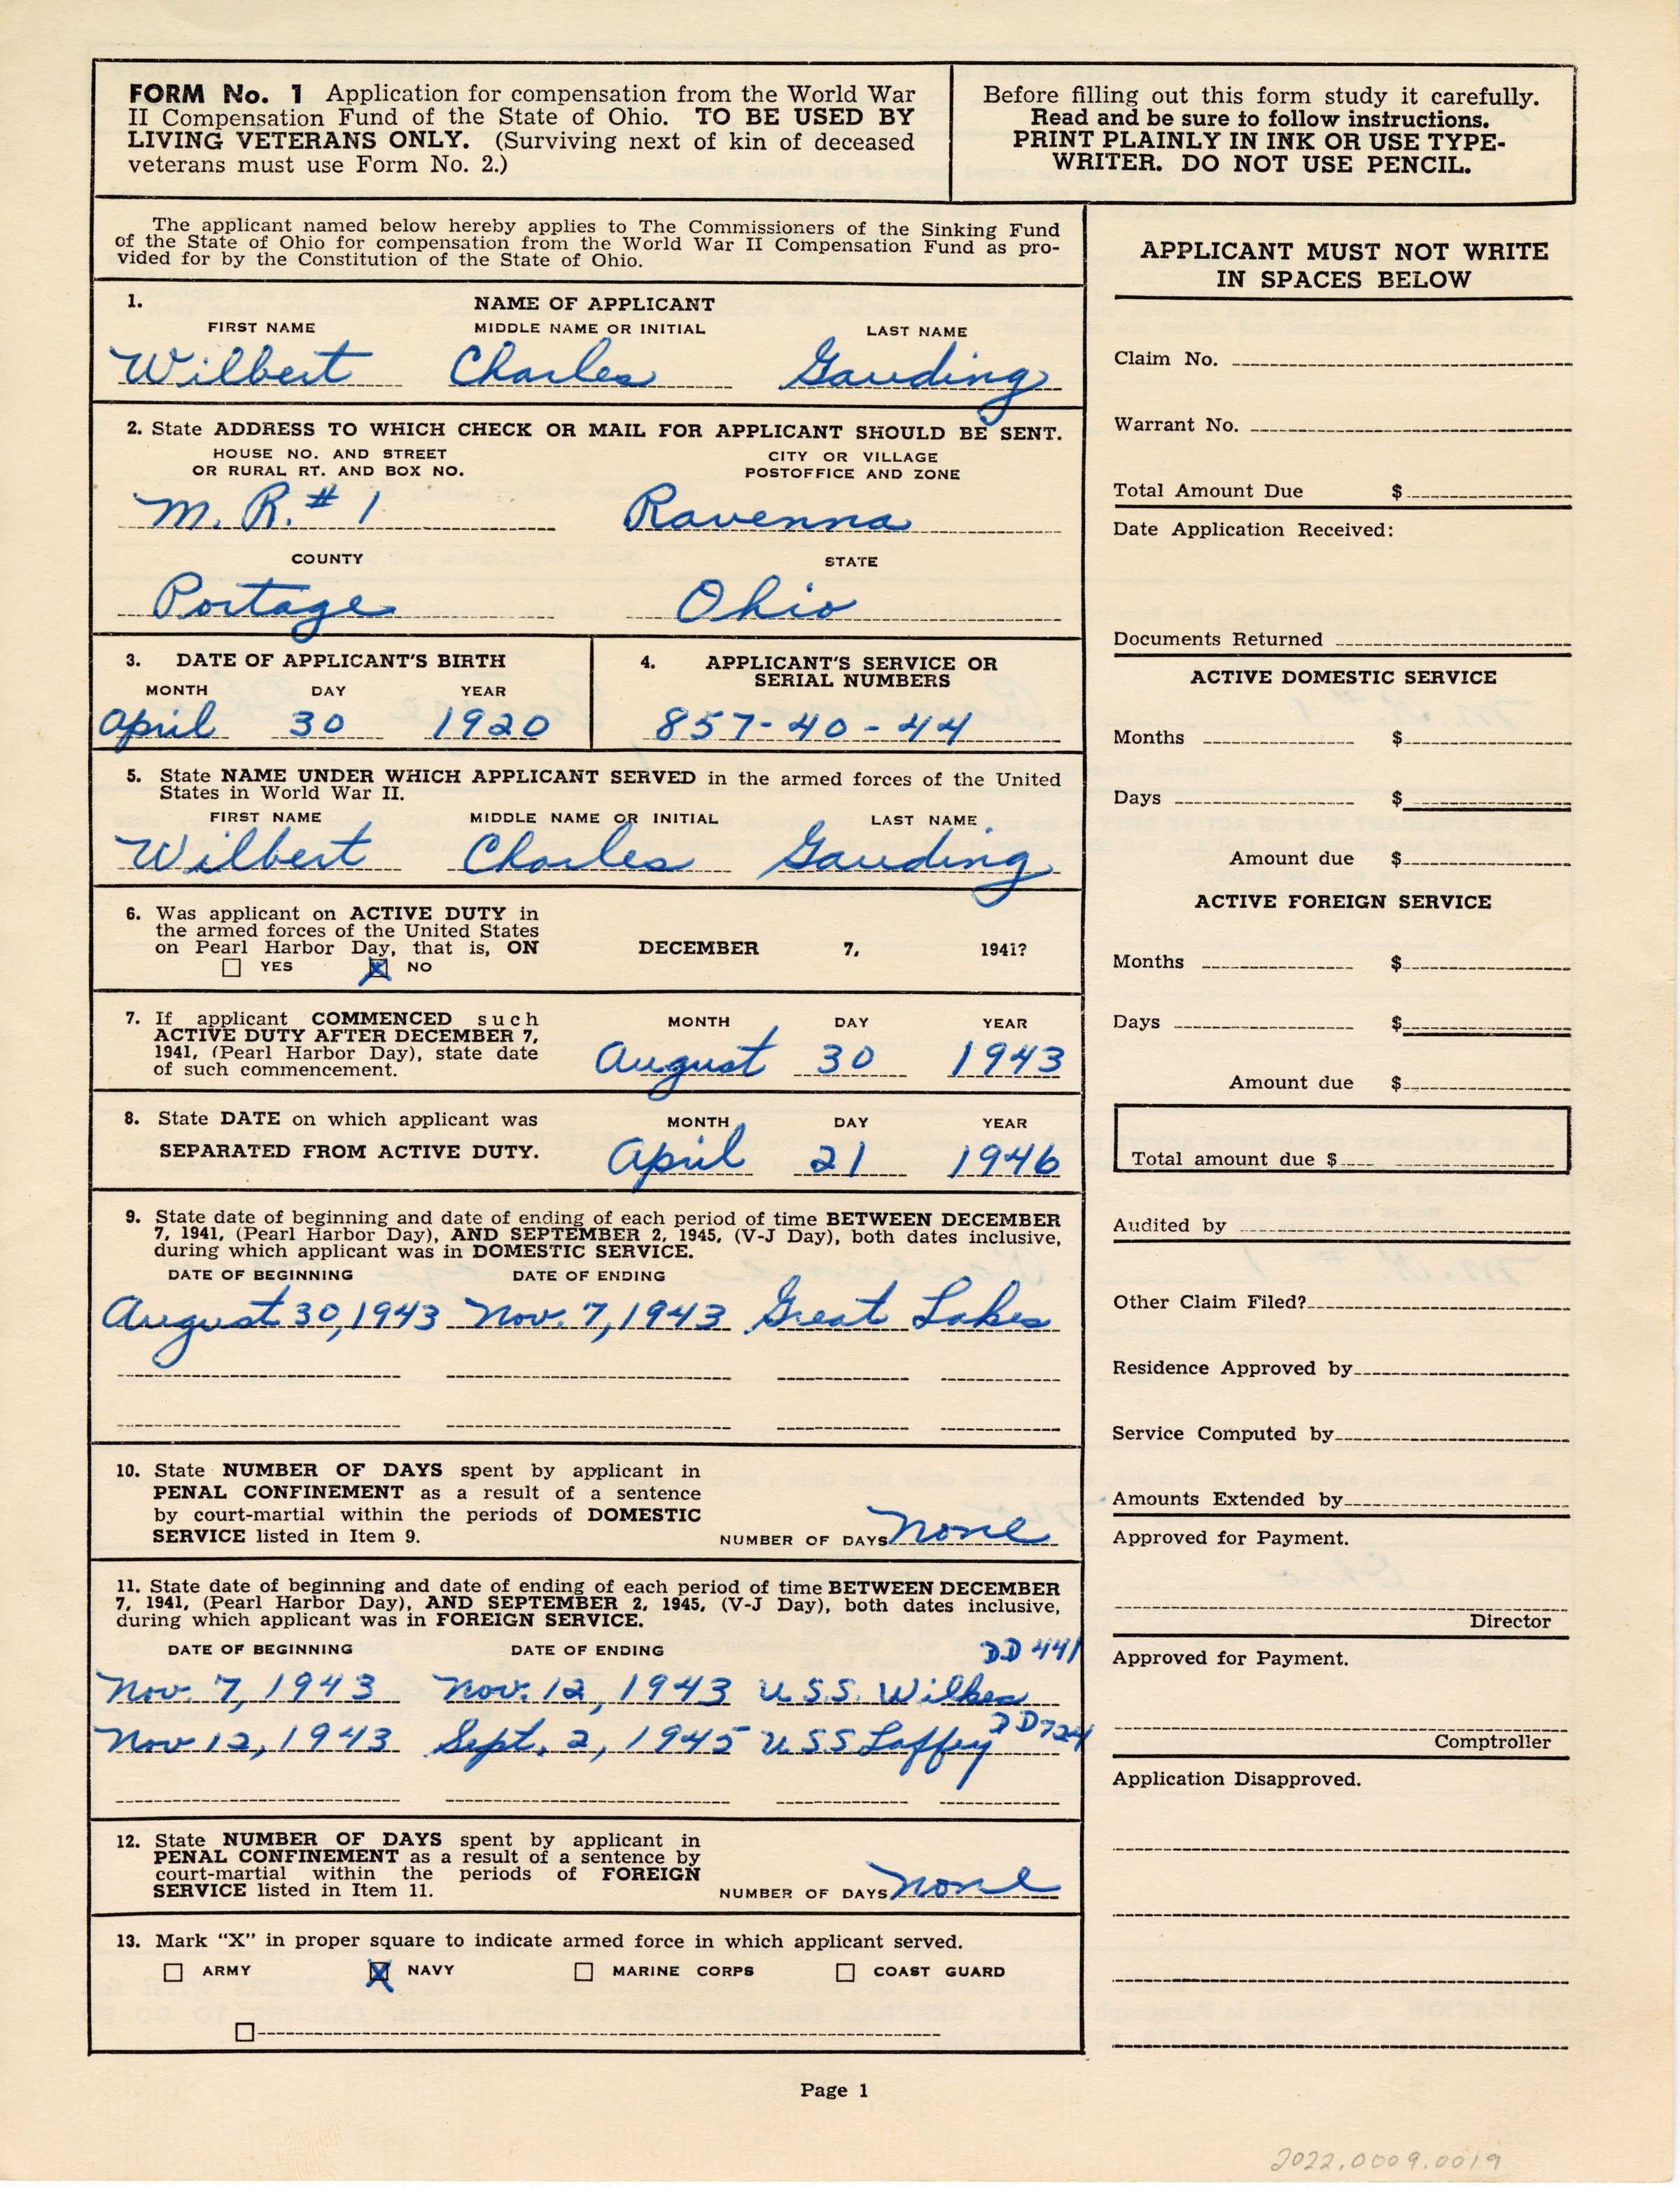 FORM No. 1 Application for compensation from the World War
II Compensation Fund of the State of Ohio. TO BE USED BY
LIVING VETERANS ONLY. (Surviving next of kin of deceased
veterans must use Form No. 2.)
Before filling out this form study it carefully.
Read and be sure to follow instructions.
PRINT PLAINLY IN INK OR USE TYPE-
WRITER. DO NOT USE PENCIL.
The applicant named below hereby applies to The Commissioners of the Sinking Fund
of the State of Ohio for compensation from the World War II Compensation Fund as pro-
vided for by the Constitution of the State of Ohio.
1. NAME OF APPLICANT
FIRST NAME MIDDLE NAME OR INITIAL LAST NAME
Wilbert Charles Gauding
2. State ADDRESS TO WHICH CHECK OR MAIL FOR APPLICANT SHOULD BE SENT.
HOUSE NO. AND STREET CITY OR VILLAGE
OR RURAL RT. AND BOX NO. POSTOFFICE AND ZONE
M. R. # 1 Ravenna
COUNTY STATE
Portage Ohio
3. DATE OF APPLICANT'S BIRTH
MONTH DAY YEAR
April 30 1920
4. APPLICANT'S SERVICE OR
SERIAL NUMBERS
857-40-44
5. State NAME UNDER WHICH APPLICANT SERVED in the armed forces of the United
States in World War II.
FIRST NAME MIDDLE NAME OR INITIAL LAST NAME
Wilbert Charles Gauding
6. Was applicant on ACTIVE DUTY in
the armed forces of the United States
on Pearl Harbor Day, that is, ON DECEMBER 7, 1941?
YES X NO
7. If applicant COMMENCED such
ACTIVE DUTY AFTER DECEMBER 7,
1941, (Pearl Harbor Day), state date
of such commencement.
MONTH DAY YEAR
August 30 1943
8. State DATE on which applicant was
SEPARATED FROM ACTIVE DUTY.
MONTH DAY YEAR
April 21 1946
9. State date of beginning and date of ending of each period of time BETWEEN DECEMBER
7, 1941, (Pearl Harbor Day), AND SEPTEMBER 2, 1945, (V-J Day), both dates inclusive,
during which applicant was in DOMESTIC SERVICE.
DATE OF BEGINNING DATE OF ENDING
August 30, 1943 Nov. 7, 1943 Great Lakes
10. State NUMBER OF DAYS spent by applicant in
PENAL CONFINEMENT as a result of a sentence
by court-martial within the periods of DOMESTIC
SERVICE listed in Item 9. NUMBER OF DAYS none
11. State date of beginning and date of ending of each period of time BETWEEN DECEMBER
7, 1941, (Pearl Harbor Day), AND SEPTEMBER 2, 1945, (V-J Day), both dates inclusive,
during which applicant was in FOREIGN SERVICE.
DATE OF BEGINNING DATE OF ENDING DD 441
Nov. 7, 1943 Nov. 12, 1943 U.S.S. Wilkes
Nov 12, 1943 Sept. 2, 1945 U.S.S Laffey DD724
12. State NUMBER OF DAYS spent by applicant in
PENAL CONFINEMENT as a result of a sentence by
court-martial within the periods of FOREIGN
SERVICE listed in Item 11. NUMBER OF DAYS none
13. Mark "X" in proper square to indicate armed force in which applicant served.
ARMY X NAVY MARINE CORPS COAST GUARD
APPLICANT MUST NOT WRITE
IN SPACES BELOW
Claim No.
Warrant No.
Total Amount Due $
Date Application Received:
Documents Returned
ACTIVE DOMESTIC SERVICE
Months $
Days $
Amount due $
ACTIVE FOREIGN SERVICE
Months $
Days $
Amount due $
Total amount due $
Audited by
Other Claim Filed?
Residence Approved by
Service Computed by
Amounts Extended by
Approved for Payment.
Director
Approved for Payment.
Comptroller
Application Disapproved.
Page 1
2022.0009.0019